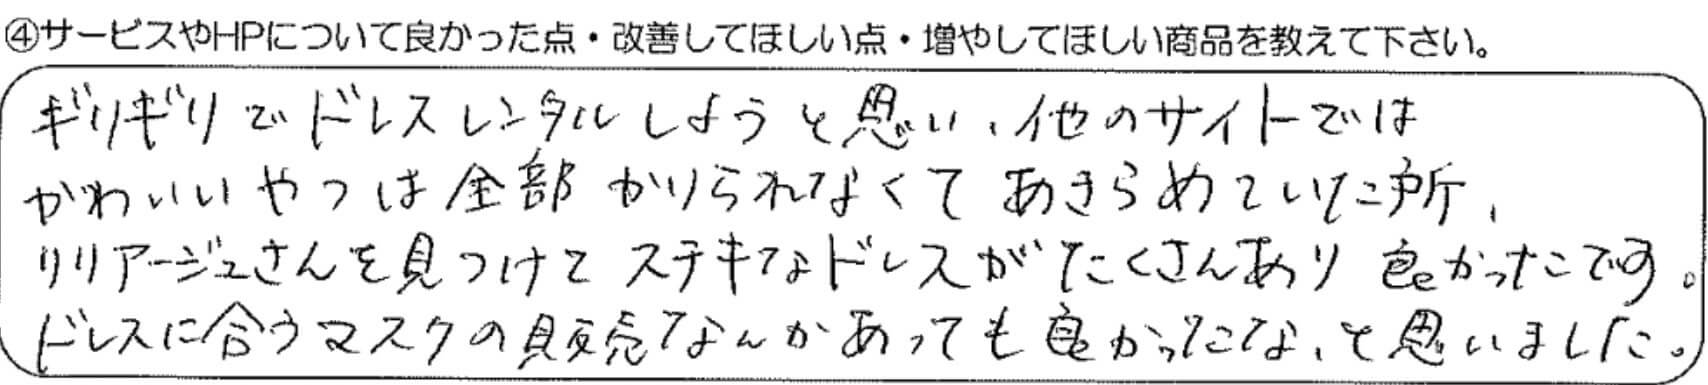 ④サービスやHPについて良かった点・改善してほしい点・増やしてほしい商品を教えて下さい。
ギリギリでドレスレンタルしようと思い、他のサイトでは
かわいいやつは全部かりられなくてあきらめていた所、
リリアージュさんを見つけてステキなドレスがたくさんあり良かったです。
ドレスに合うマスクの販売なんかあっても良かったな、と思いました。